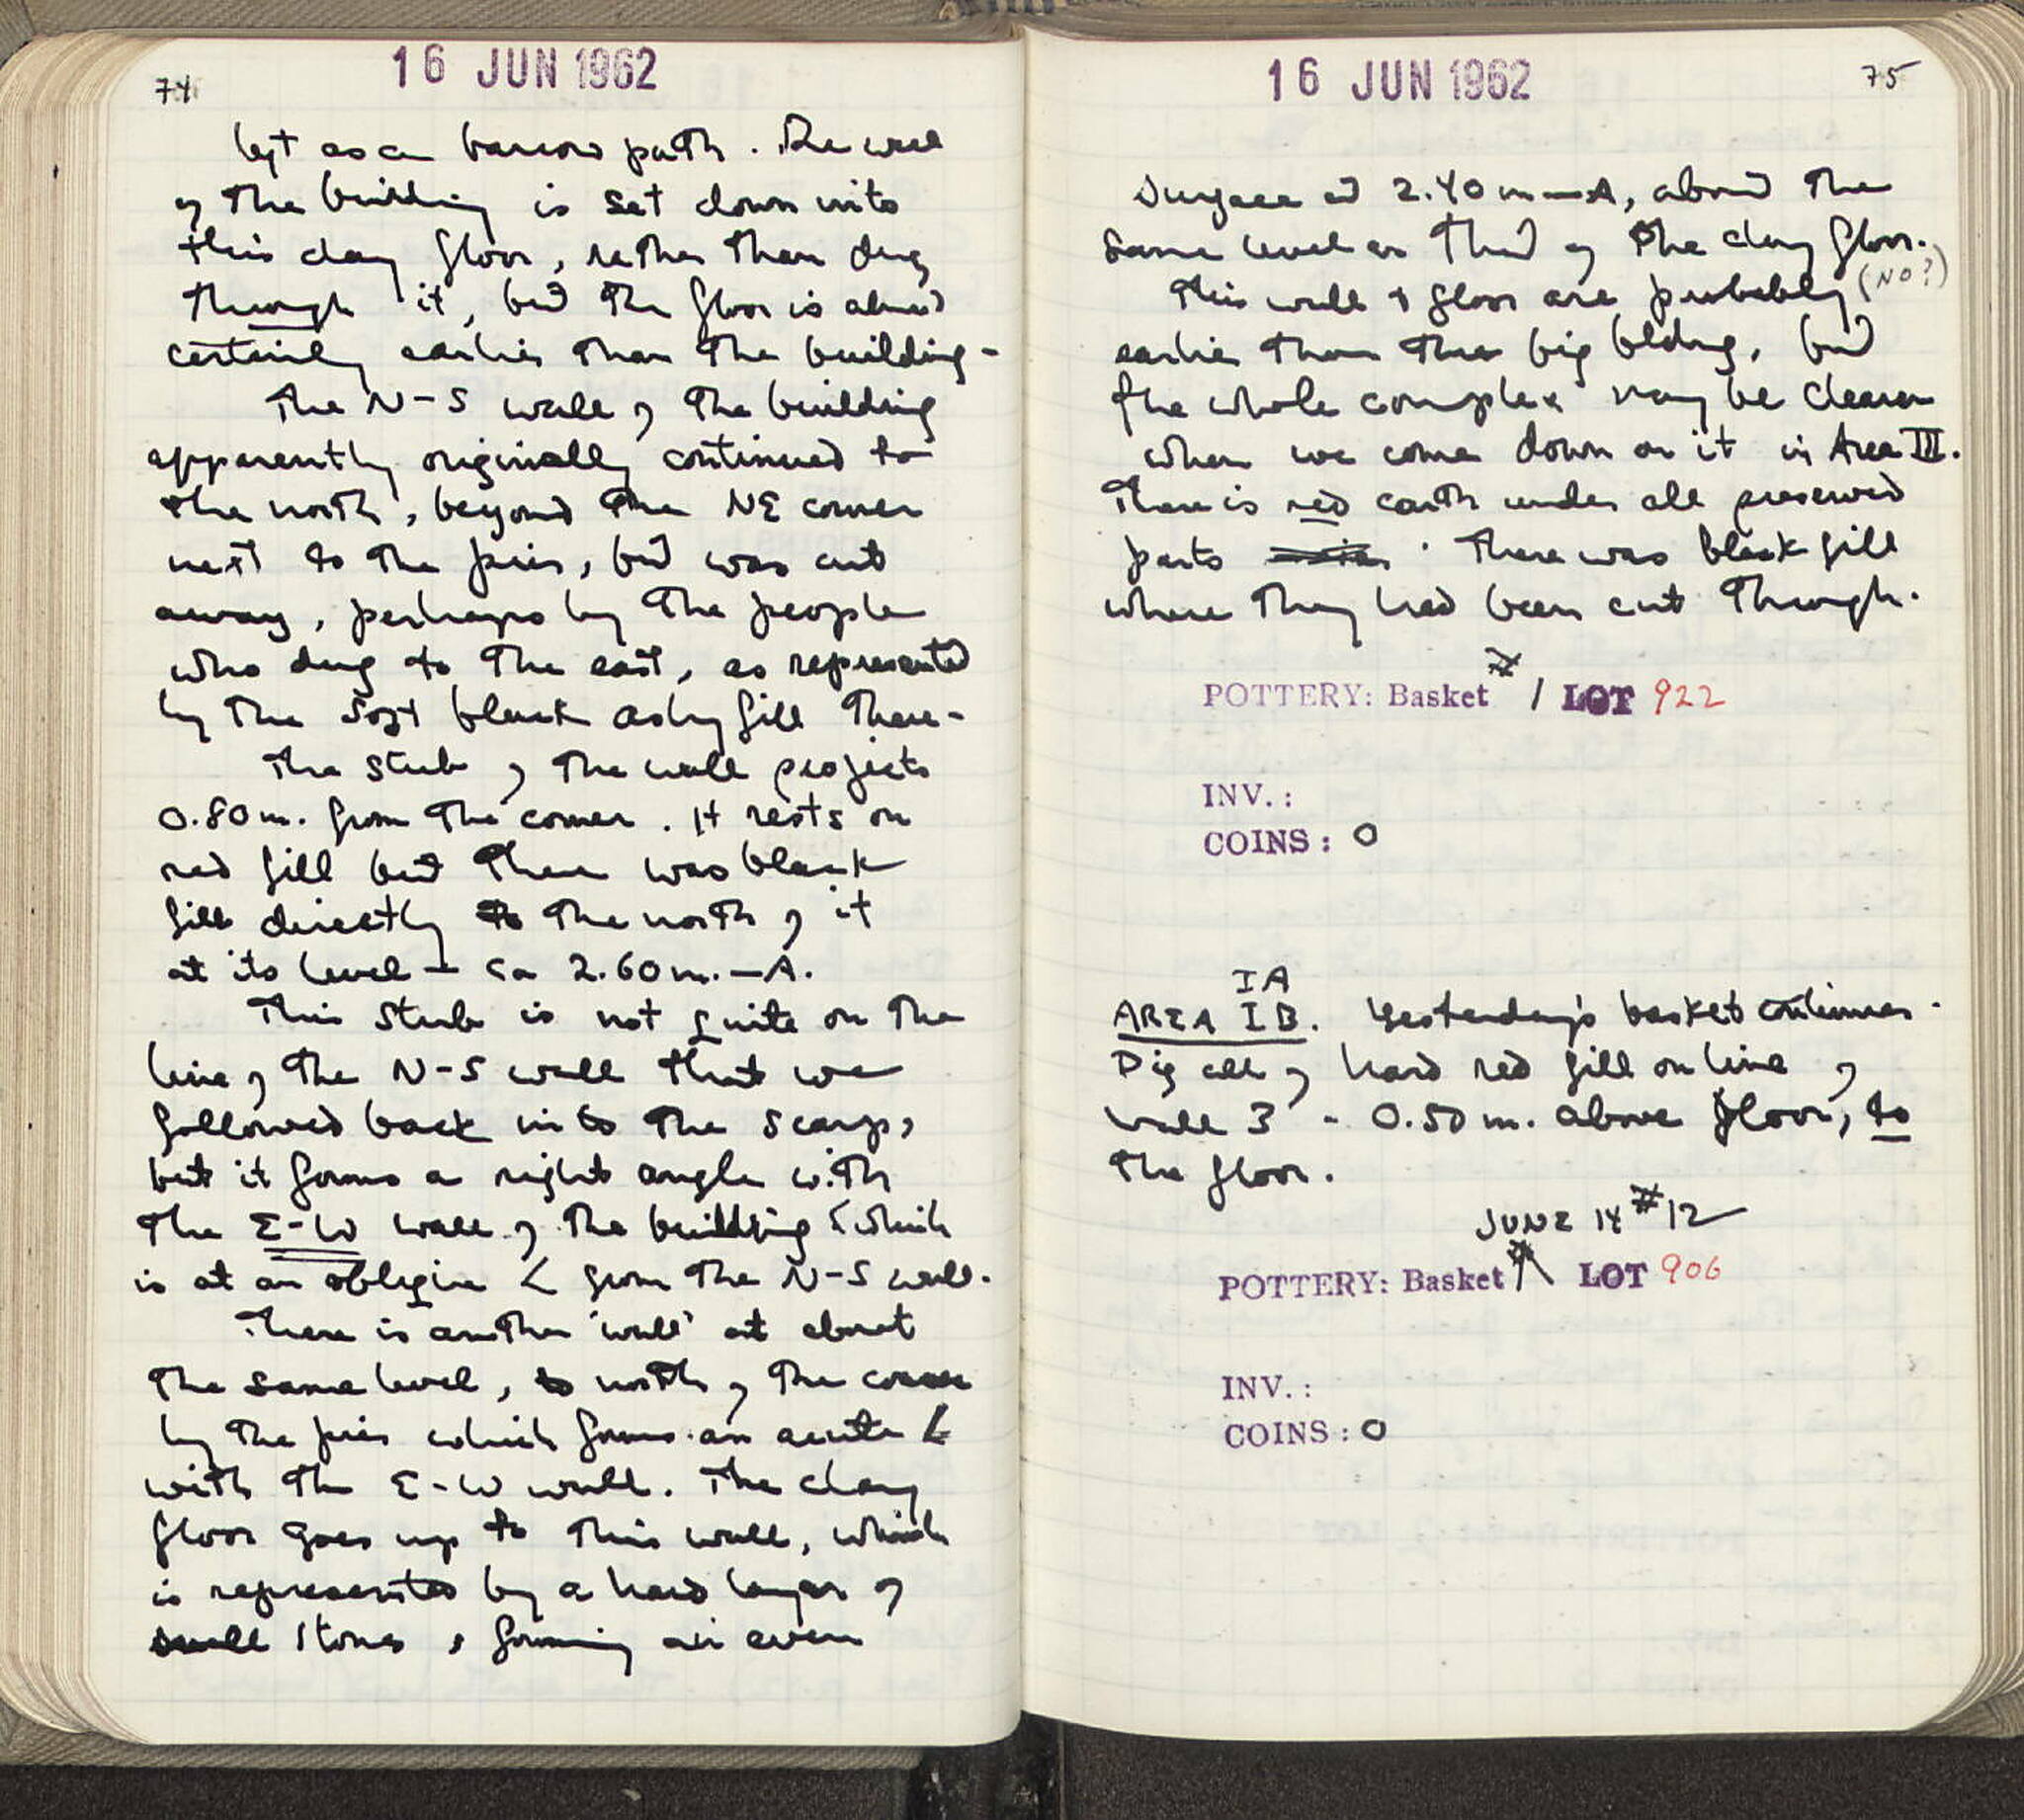 74
16 JUN 1962
left as a barrow path. The wall
of the building is set down into
this clay floor, rather than dug
through it, but the floor is almost
certainly earlier than the building.
The N-S wall of the building
apparently originally continued to
the north, beyond the NE corner
next to the pier, but was cut
away, perhaps by the people
who dug to the east, as represented
by the soft black ashy fill there.
The stub of the wall projects
0.80 m. from the corner. It rests on
red fill but there was black
fill directly to the north of it
at its level - ca 2.60 m. - A.
This stub is not quite on the
line of the N-S wall that we
followed back into the scarp,
but it forms a right angle with
the E-W wall of the building (which
is at an oblique ∠ from the N-S wall.
There is another 'wall' at about
the same level, to north of the corner
by the pier which forms an acute ∠
with the E-W wall. The clay
floor goes up to this wall, which
is represented by a hard layer of
small stones, forming an even
16 JUN 1962
75
surface at 2.40 m - A, about the
same level as that of the clay floor.
This wall & floor are probably (NO?)
earlier than the big bldng, but
the whole complex may be clearer
when we come down on it in Area III.
There is red earth under all preserved
parts. There was black fill
where they had been cut through.
POTTERY: Basket # 1 LOT 922
INV. :
COINS : 0
IA
AREA IB. Yesterday's basket continues.
Dig all of hard red fill on line of
wall 3 - 0.50 m. above floor, to
the floor.
JUNE 14 #12
POTTERY: Basket LOT 906
INV. :
COINS : 0